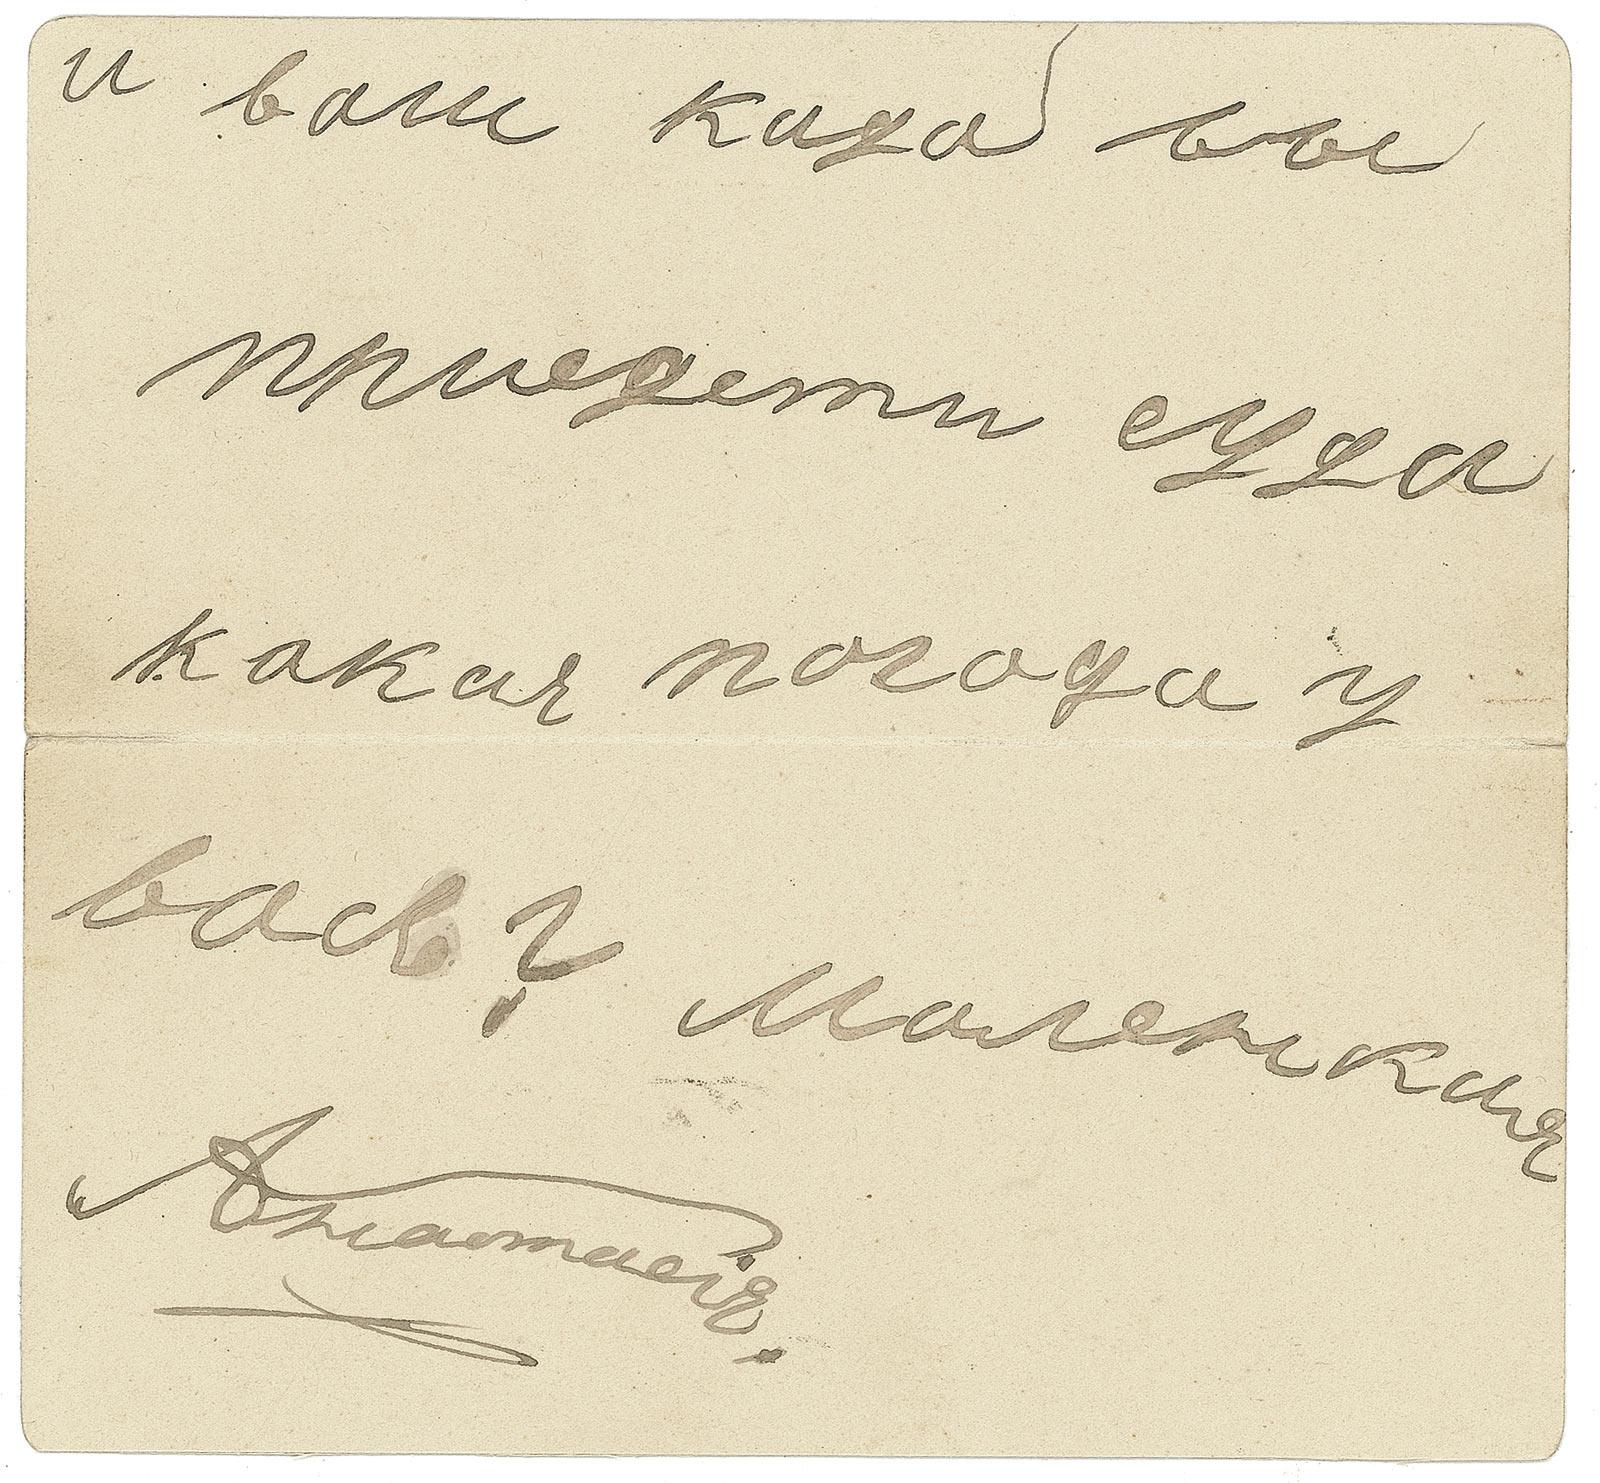 и ваш када вы
приедети суда
какая погода у
васъ? Маленкая
Анастасія.